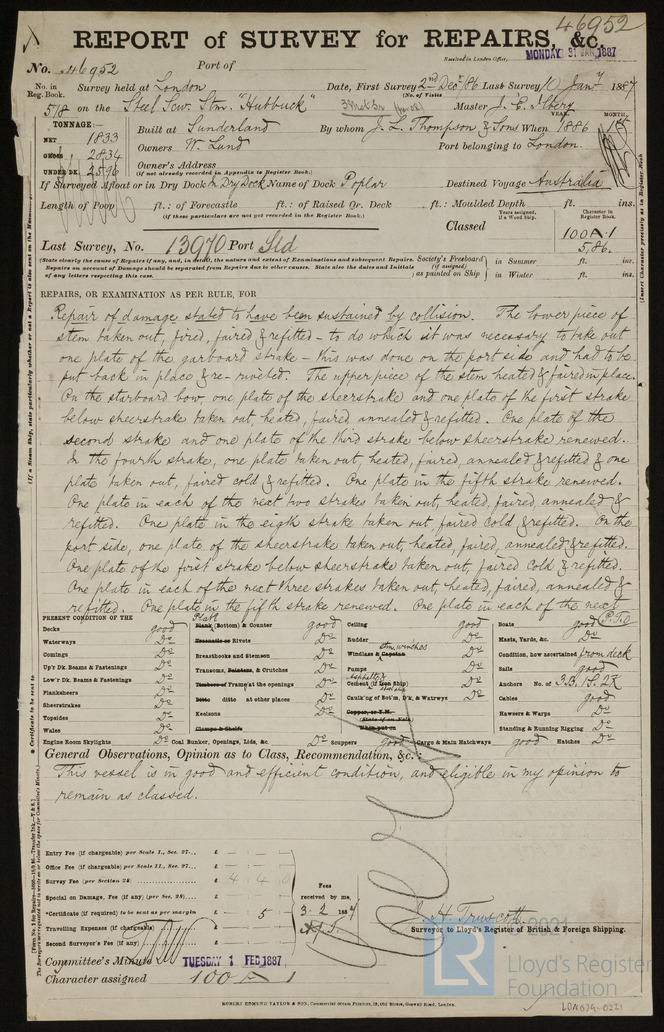 46952
REPORT of SURVEY for REPAIRS, &c.
Received in London Office, MONDAY 31 JAN 1887
No. 46952 Port of
No. in Reg. Book. Survey held at London Date, First Survey 2nd Decr /86 Last Survey 10 Jany 1887
(No. of Visits
518 on the Steel Scw. Stmr. "Hubbuck" Master J. E. Ilbery
TONNAGE:—
NETT 1833
GROSS 2834
UNDER DK. 2596
Built at Sunderland By whom J. L. Thompson & Sons When 1886
YEAR. MONTH.
Owners W. Lund Port belonging to London.
Owner's Address
(if not already recorded in Appendix to Register Book.)
If Surveyed Afloat or in Dry Dock In Dry Dock Name of Dock Poplar Destined Voyage Australia
Length of Poop ft.: of Forecastle ft.: of Raised Qr. Deck ft.: Moulded Depth ft. ins.
(if these particulars are not yet recorded in the Register Book.)
Years assigned, if a Wood Ship. Character in Register Book.
Classed 100A·1
5,86.
Last Survey, No. 13970 Port Sld
(State clearly the cause of Repairs if any, and, in detail, the nature and extent of Examinations and subsequent Repairs.
Repairs on account of Damage should be separated from Repairs due to other causes. State also the dates and Initials
of any letters respecting this case.
Society's Freeboard (if assigned) as painted on Ship
in Summer ft. ins.
in Winter ft. ins.
REPAIRS, OR EXAMINATION AS PER RULE, FOR
Repair of damage stated to have been sustained by collision. The lower piece of
stem taken out, fired, faired & refitted - to do which it was necessary to take out
one plate of the garboard strake - this was done on the port side and had to be
put back in place & re-riveted. The upper piece of the stem heated & faired in place.
On the starboard bow, one plate of the sheerstrake and one plate of the first strake
below sheerstrake taken out, heated, faired, annealed & refitted. One plate of the
second strake and one plate of the third strake below sheerstrake renewed.
In the fourth strake, one plate taken out, heated, faired, annealed & refitted & one
plate taken out, faired cold & refitted. One plate in the fifth strake renewed.
One plate in each of the next two strakes taken out, heated, faired, annealed &
refitted. One plate in the eigth strake taken out, faired cold & refitted. On the
port side, one plate of the sheerstrake taken out, heated, faired, annealed & refitted.
One plate of the first strake below sheerstrake taken out, faired cold & refitted.
One plate in each of the next three strakes taken out, heated, faired, annealed &
refitted. One plate in the fifth strake renewed. One plate in each of the next
P.T.O
PRESENT CONDITION OF THE
Decks good
Waterways Do
Comings Do
Up'r Dk. Beams & Fastenings Do
Low'r Dk. Beams & Fastenings Do
Planksheers Do
Sheerstrakes Do
Topsides Do
Wales Do
Engine Room Skylights Do
Plank Plate (Bottom) & Counter good
Treenails or Rivets Do
Breasthooks and Stemson Do
Transoms, Pointers, & Crutches Do
Timbers of Frame at the openings Do
Ditto ditto at other places Do
Keelsons Do
Clamps & Shelfs
Coal Bunker, Openings, Lids, &c. Do
Ceiling good
Rudder Do
Windlass & Capstan stm. winches Do
Pumps Do
Cement (if Iron Ship) Asphalte Do
Caulk'ng of Bot'm, D'k, & Watrwys Do
Copper, or Y.M.
(State if on Felt)
When put on
Scuppers good
Cargo & Main Hatchways good
Boats good
Masts, Yards, &c. Do
Condition, how ascertained from deck
Sails good
Anchors No. of 3.B. 1 S. 2 K
Cables good
Hawsers & Warps Do
Standing & Running Rigging Do
Hatches Do
General Observations, Opinion as to Class, Recommendation, &c.:
This vessel is in good and efficient condition, and eligible in my opinion to
remain as classed.
Entry Fee (if chargeable) per Scale I., Sec. 27... £
Office Fee (if chargeable) per Scale II., Sec. 27... £
Survey Fee (per Section 28) £ 4 4 0
Special on Damage, Fee (if any) (per Sec. 28) £
*Certificate (if required) to be sent as per margin £ 5
Travelling Expenses (if chargeable) £
Second Surveyor's Fee (if any) £
Fees received by me,
3-2 1887
J. H. Truscott
Surveyor to Lloyd's Register of British & Foreign Shipping.
Committee's Minute TUESDAY 1 FEB 1887
Character assigned 100 A 1
ROBERT EDMUND TAYLOR & SON, Commercial Steam Printers, 19, Old Street, Goswell Road, London.
© 2021
LR
Lloyd's Register
Foundation
LON679-0221